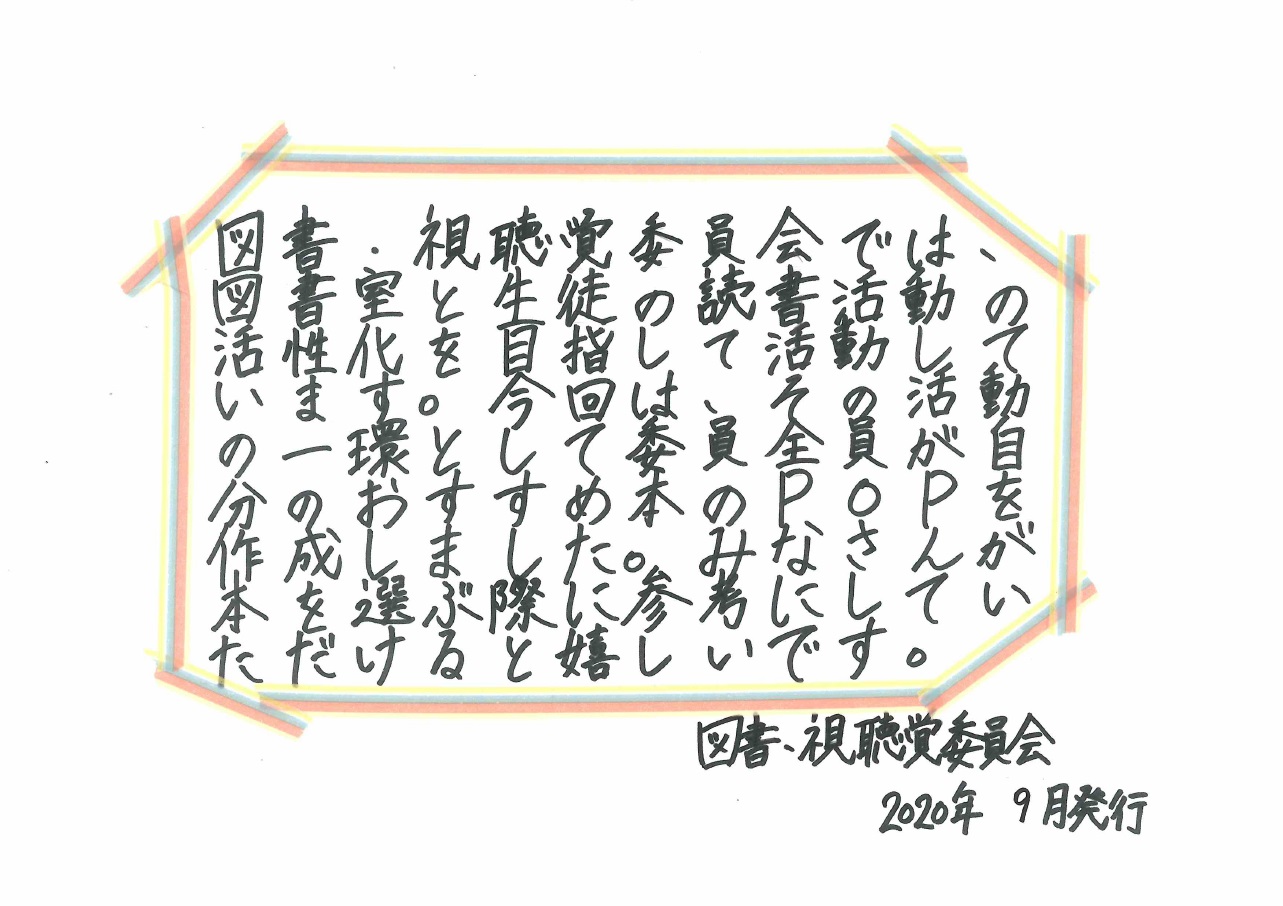 図書・視聴覚委員会では、
図書室と生徒の読書活動の
活性化を目指して活動して
います。今回は、その活動
の一環として委員全員が目
分のおすすめ本のPOPを
作成しました。みなさんが
本を選ぶ際に参考にしてい
ただけると嬉しいです。
図書、視聴覚委員会
2020年 9月発行